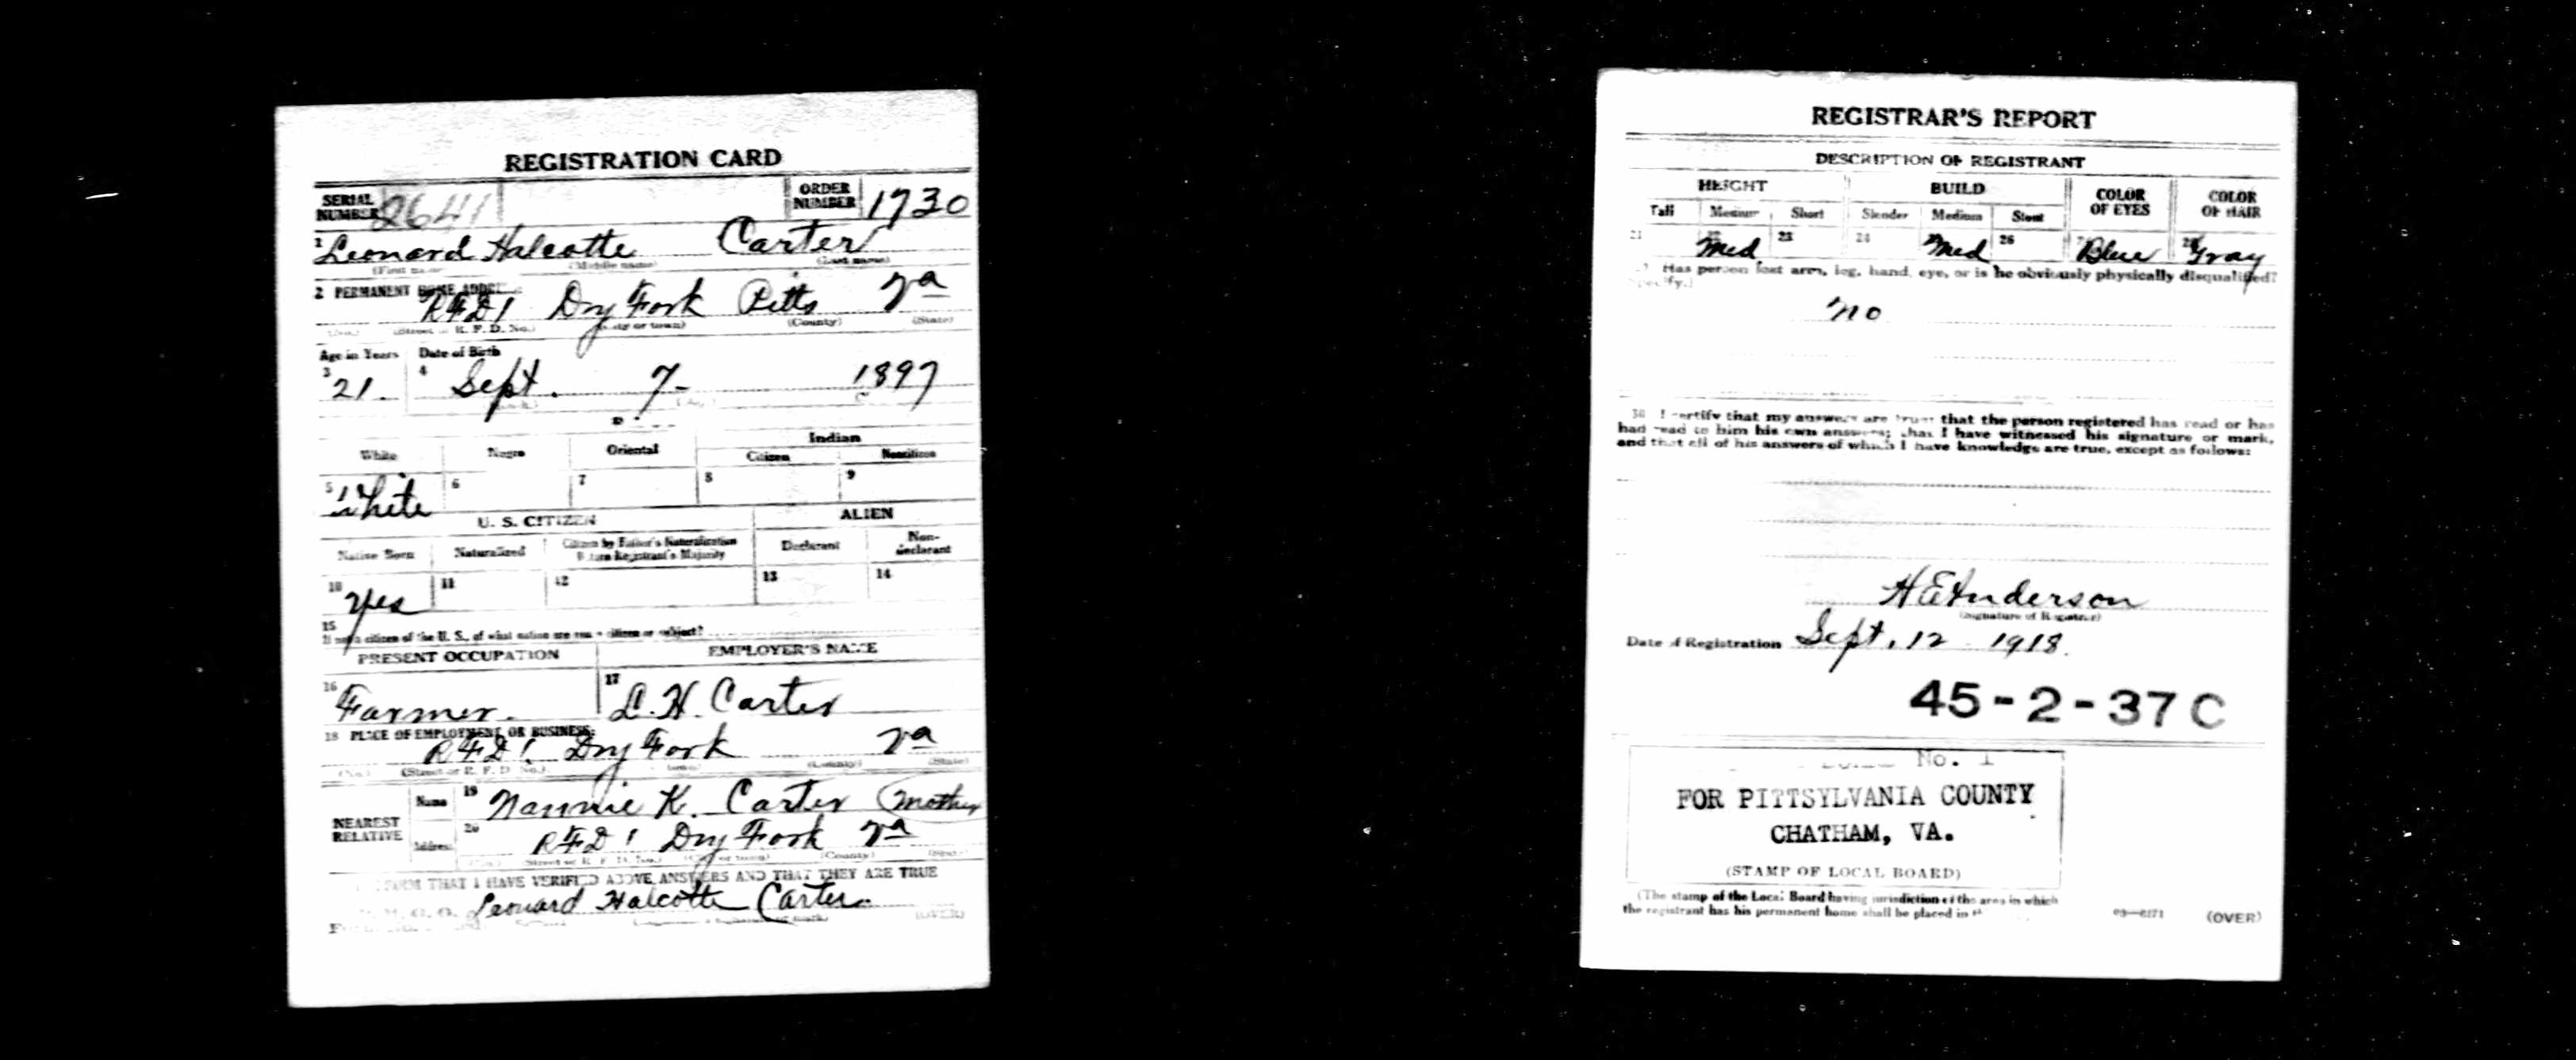 REGISTRATION CARD
SERIAL NUMBER 2641 ORDER NUMBER 1730
1 Leonard Halcotte Carter
(First name) (Middle name) (Last name)
2 PERMANENT HOME ADDRESS:
RFD1 Dry Fork Pitts Va
(Street or R. F. D. No.) (City or town) (County) (State)
Age in Years Date of Birth
3 21. 4 Sept. 7- 1897
Indian
White Negro Oriental Citizen Noncitizen
5 White 6 7 8 9
U. S. CITIZEN ALIEN
Native Born Naturalized Citizen by Father's Naturalization Before Registrant's Majority Declarant Non-declarant
10 Yes 11 12 13 14
15
If not a citizen of the U. S., of what nation are you a citizen or subject?
PRESENT OCCUPATION EMPLOYER'S NAME
16 Farmer. 17 L. H. Carter
18 PLACE OF EMPLOYMENT OR BUSINESS:
RFD1. Dry Fork Va
(No.) (Street or R. F. D. No.) (County) (State)
NEAREST RELATIVE
Name 19 Nannie K. Carter (Mother
Address 20 RFD1 Dry Fork Va
(Street or R. F. D. No.) (City or town) (County)
THAT I HAVE VERIFIED ABOVE ANSWERS AND THAT THEY ARE TRUE
Leonard Halcotte Carter
(OVER)
REGISTRAR'S REPORT
DESCRIPTION OF REGISTRANT
HEIGHT BUILD COLOR OF EYES COLOR OF HAIR
Tall Medium Short Slender Medium Stout
21 Med 23 24 Med 26 Blue Gray
Has person lost arm, leg, hand, eye, or is he obviously physically disqualified?
(Specify.)
no
30 I certify that my answers are true; that the person registered has read or has
had read to him his own answers; that I have witnessed his signature or mark,
and that all of his answers of which I have knowledge are true, except as follows:
H E Anderson
(Signature of Registrar)
Date of Registration Sept. 12 1918.
45-2-37 C
No. 1
FOR PITTSYLVANIA COUNTY
CHATHAM, VA.
(STAMP OF LOCAL BOARD)
(The stamp of the Local Board having jurisdiction of the area in which
the registrant has his permanent home shall be placed in
03—6171 (OVER)